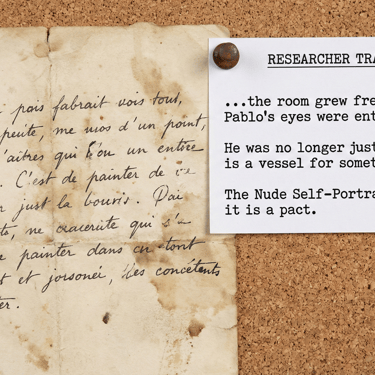 i pois fabrait vois tout,
peute, me uos d'un point,
'aitres qui s'ou un entiee
. C'est de painter de
r just la bouris. D'ai
ts, ne craceriite qui s'e
e painter dans cn tort
t et jorsoneí, des concétents
er.
RESEARCHER TRA
...the room grew fre
Pablo's eyes were ent
He was no longer just
is a vessel for somet
The Nude Self-Portra
it is a pact.